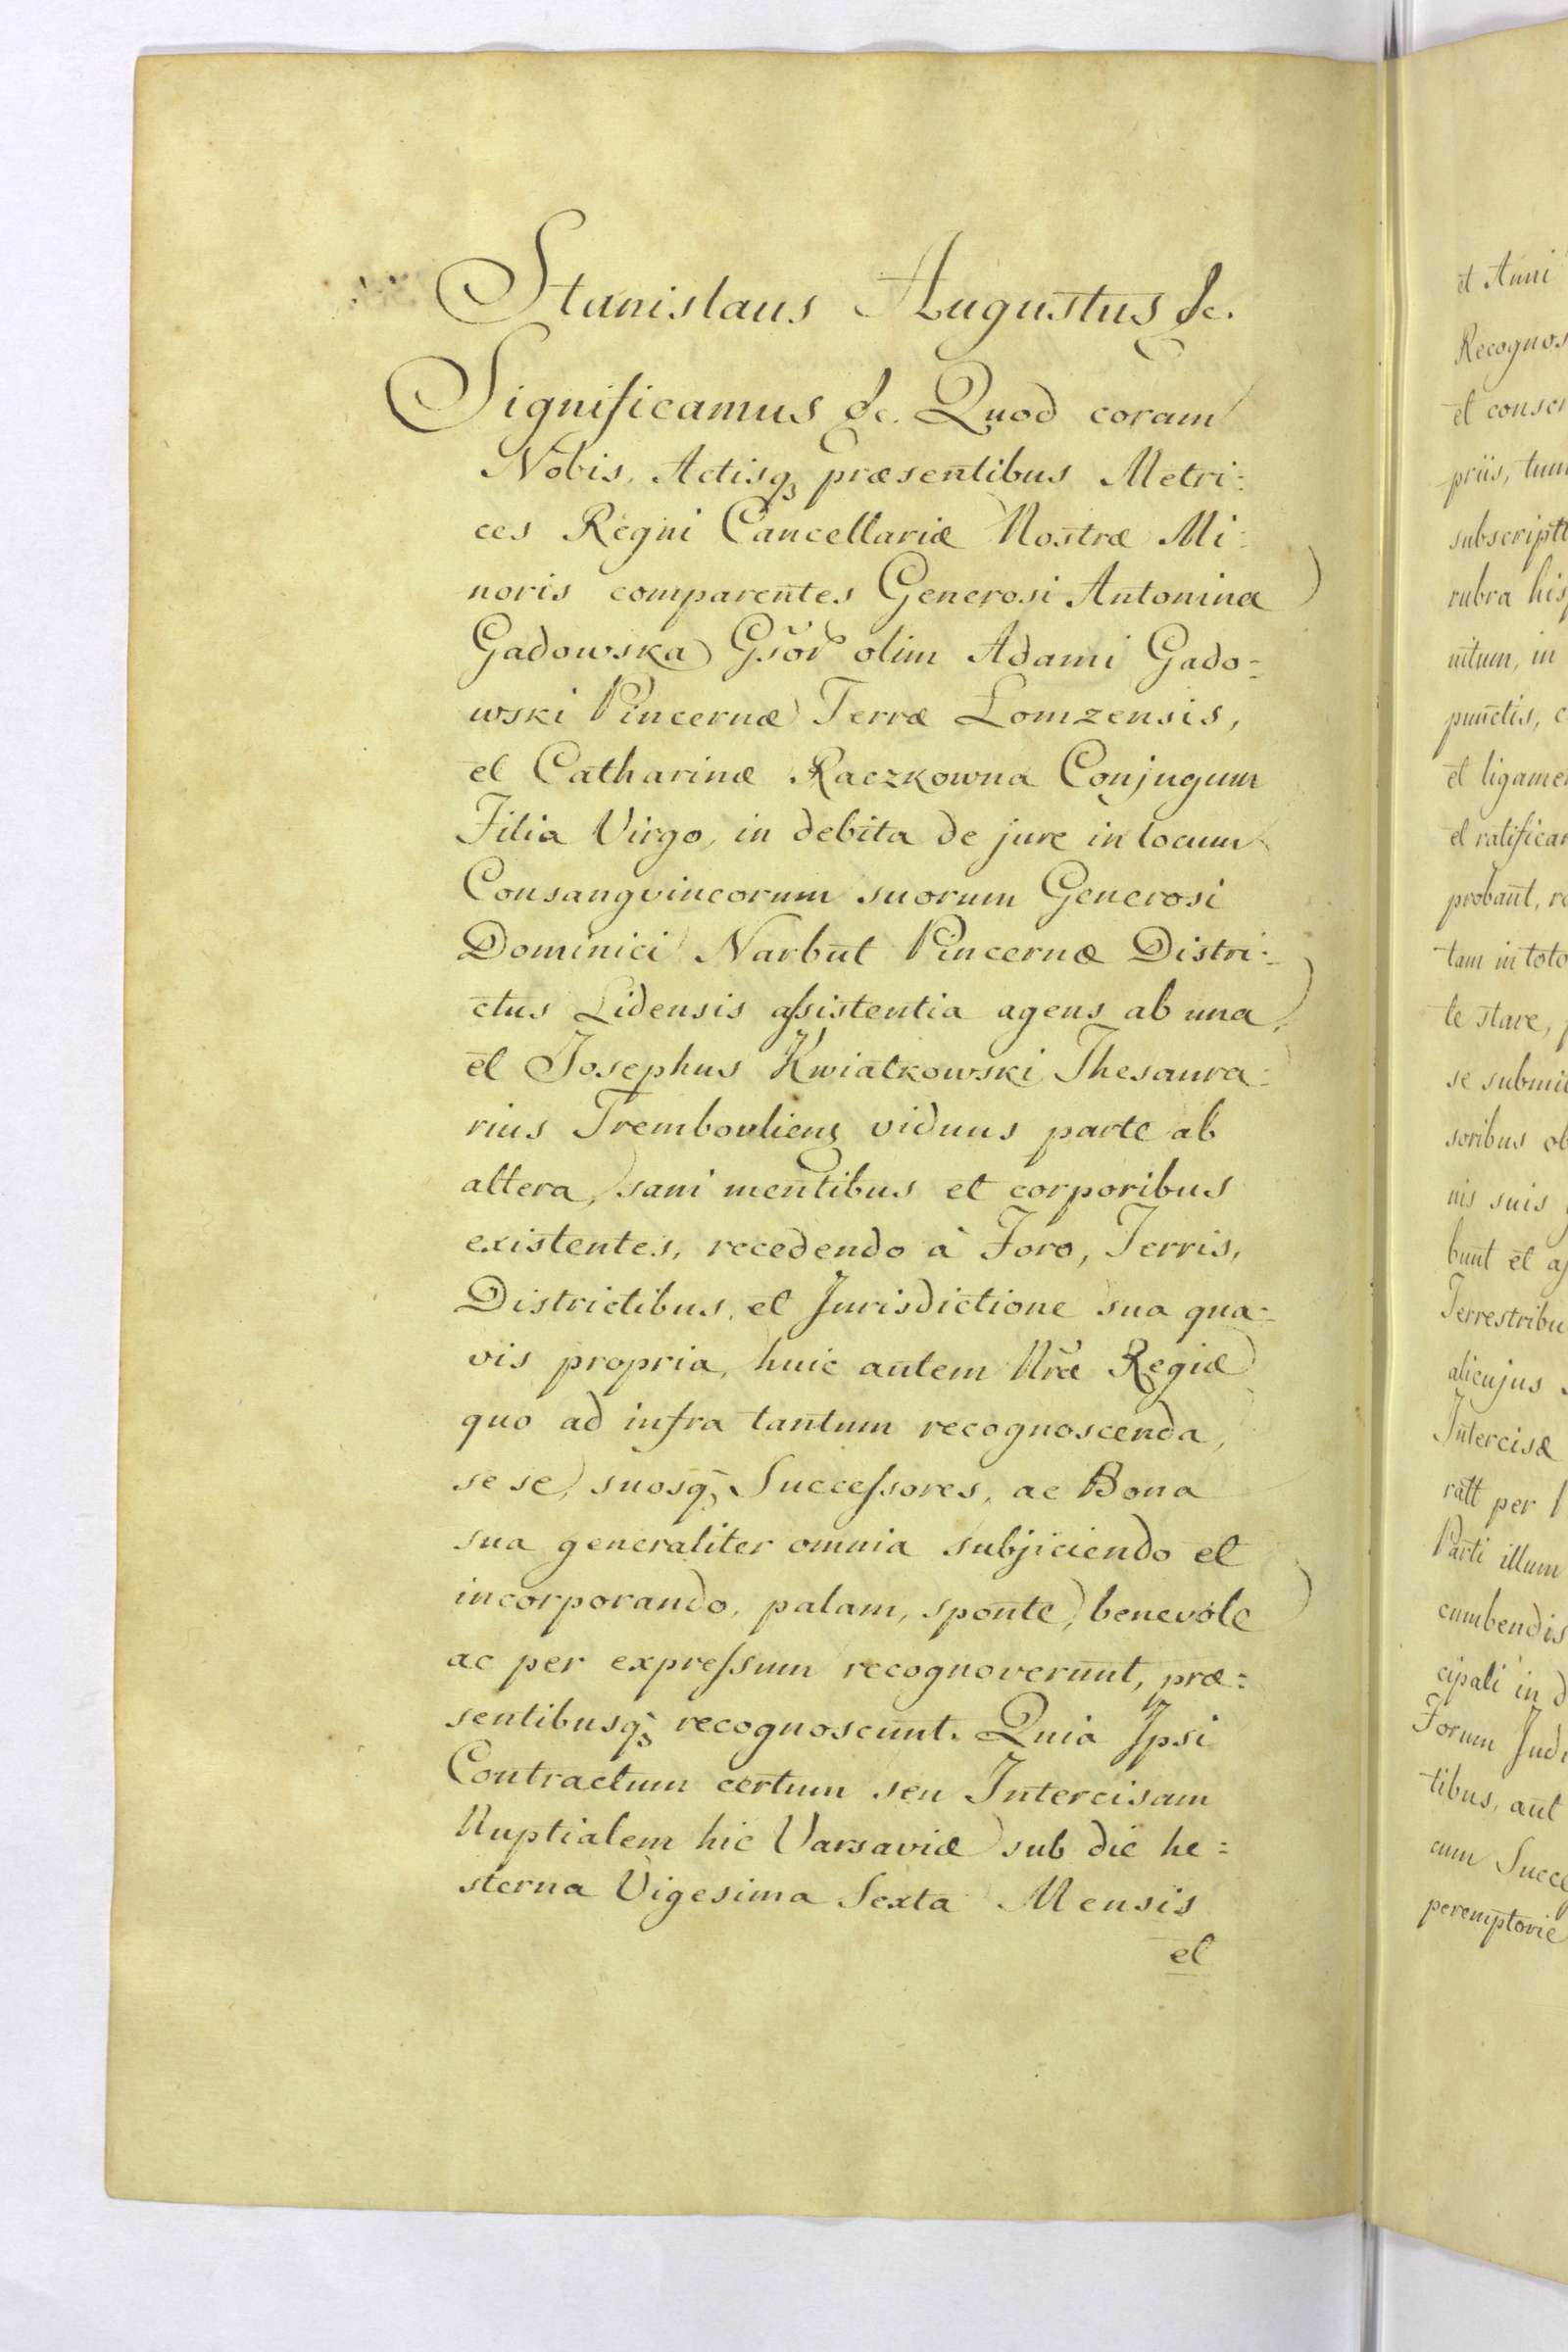 Stanislaus Augustus &c.
Significamus &c. Quod coram
Nobis, Actisq₃ præsentibus Metri:
ces Regni Cancellariæ Nostræ Mi:
noris comparentes Generosi Antonina
Gadowska Gsőr olim Adami Gado=
wski Pincernæ Terræ Lomzensis,
et Catharinæ Raczkowna Conjugum
Filia Virgo, in debita de jure in locum
Consangvineorum suorum Generosi
Dominici Narbut Pincernæ Distri:
ctus Lidensis assistentia agens ab una,
et Josephus Kwiatkowski Thesaura:
rius Trembouliens viduus parte ab
altera, sani mentibus et corporibus
existentes, recedendo à Foro, Terris,
Districtibus, et Jurisdictione sua qua=
vis propria, huic autem Nræ Regiæ
quo ad infra tantum recognoscenda,
se se, suosq₃ Successores, ac Bona
sua generaliter omnia subjiciendo et
incorporando, palam, sponte, benevole
ac per expressum recognoverunt, præ=
sentibusq₃ recognoscunt. Quia Ipsi
Contractum certum seu Intercisam
Nuptialem hic Varsaviæ sub die he=
sterna Vigesima Sexta Mensis
et
et Anni
Recognos
et conscr
priis, tum
subscriptt
rubra his
nitum, in
punctis, c
et ligame
et ratifica
probant, r
tam in toto
te stare,
se submi
soribus ob
nis suis
bunt et as
Terrestribu
alicujus
Intercisæ
ratt per
Parti illum
cumbendis
cipali in d
Forum Judi
tibus, aut
cum Succe
peremptorie